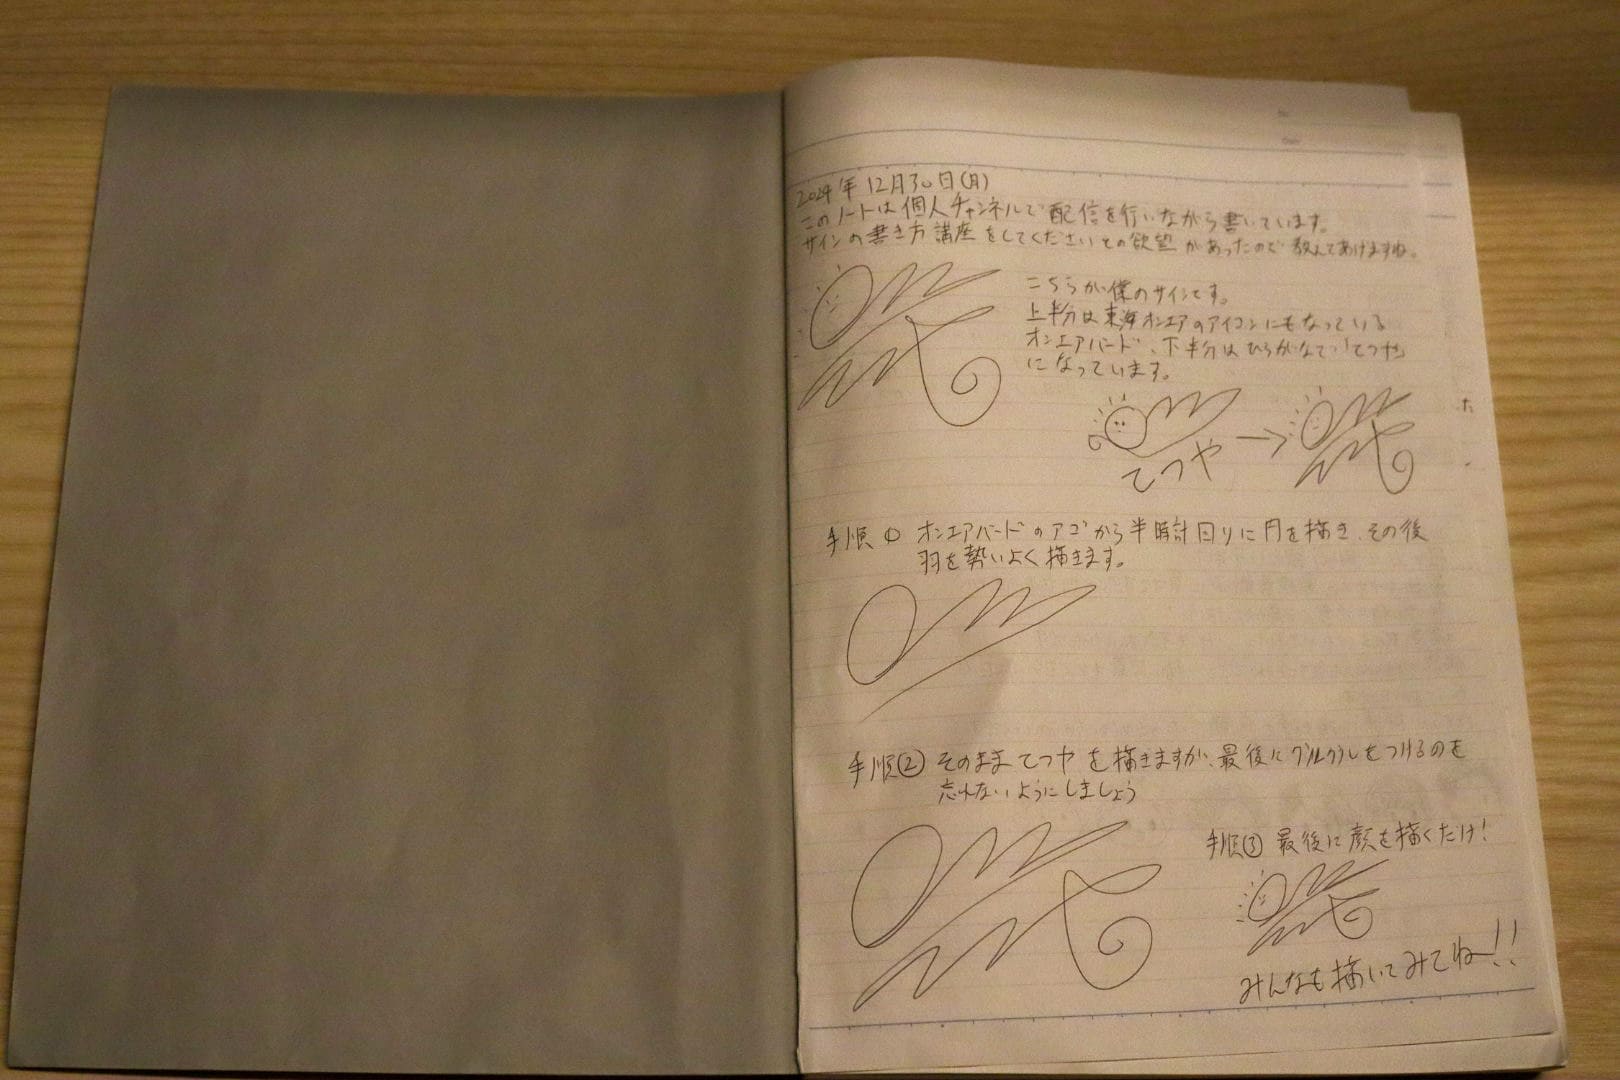 2024年12月30日(月)
このノートは個人チャンネルで配信を行いながら書いています。
サインの書き方講座をしてくださいとの欲望があったので教えてあげますね。
こちらが僕のサインです。
上半分は東海オンエアのアイコンにもなっている
オンエアバード、下半分はひらがなで「てつや」
になっています。
てつや
手順① オンエアバードのアゴから半時計回りに円を描き、その後
羽を勢いよく描きます。
手順② そのままてつやを描きますが、最後にグルグルをつけるのを
忘れないようにしましょう
手順③ 最後に顔を描くだけ!
みんなも描いてみてねー!!